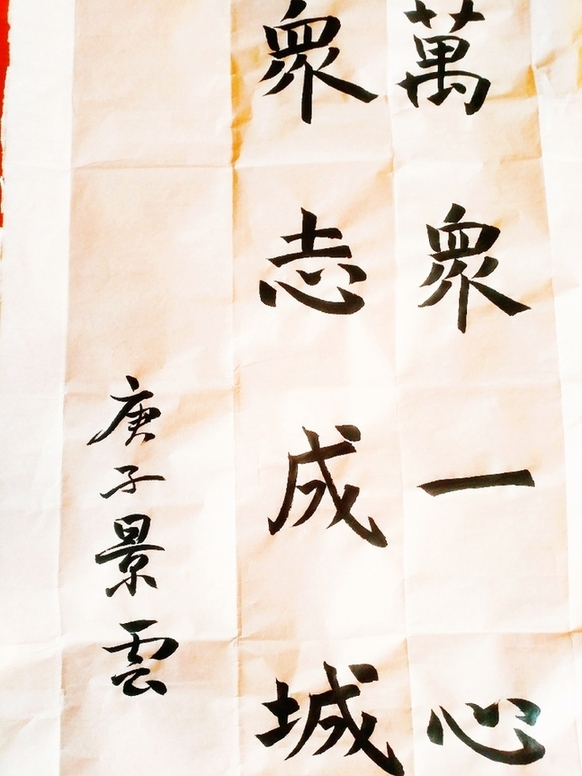 萬衆一心
衆志成城
庚子景雲